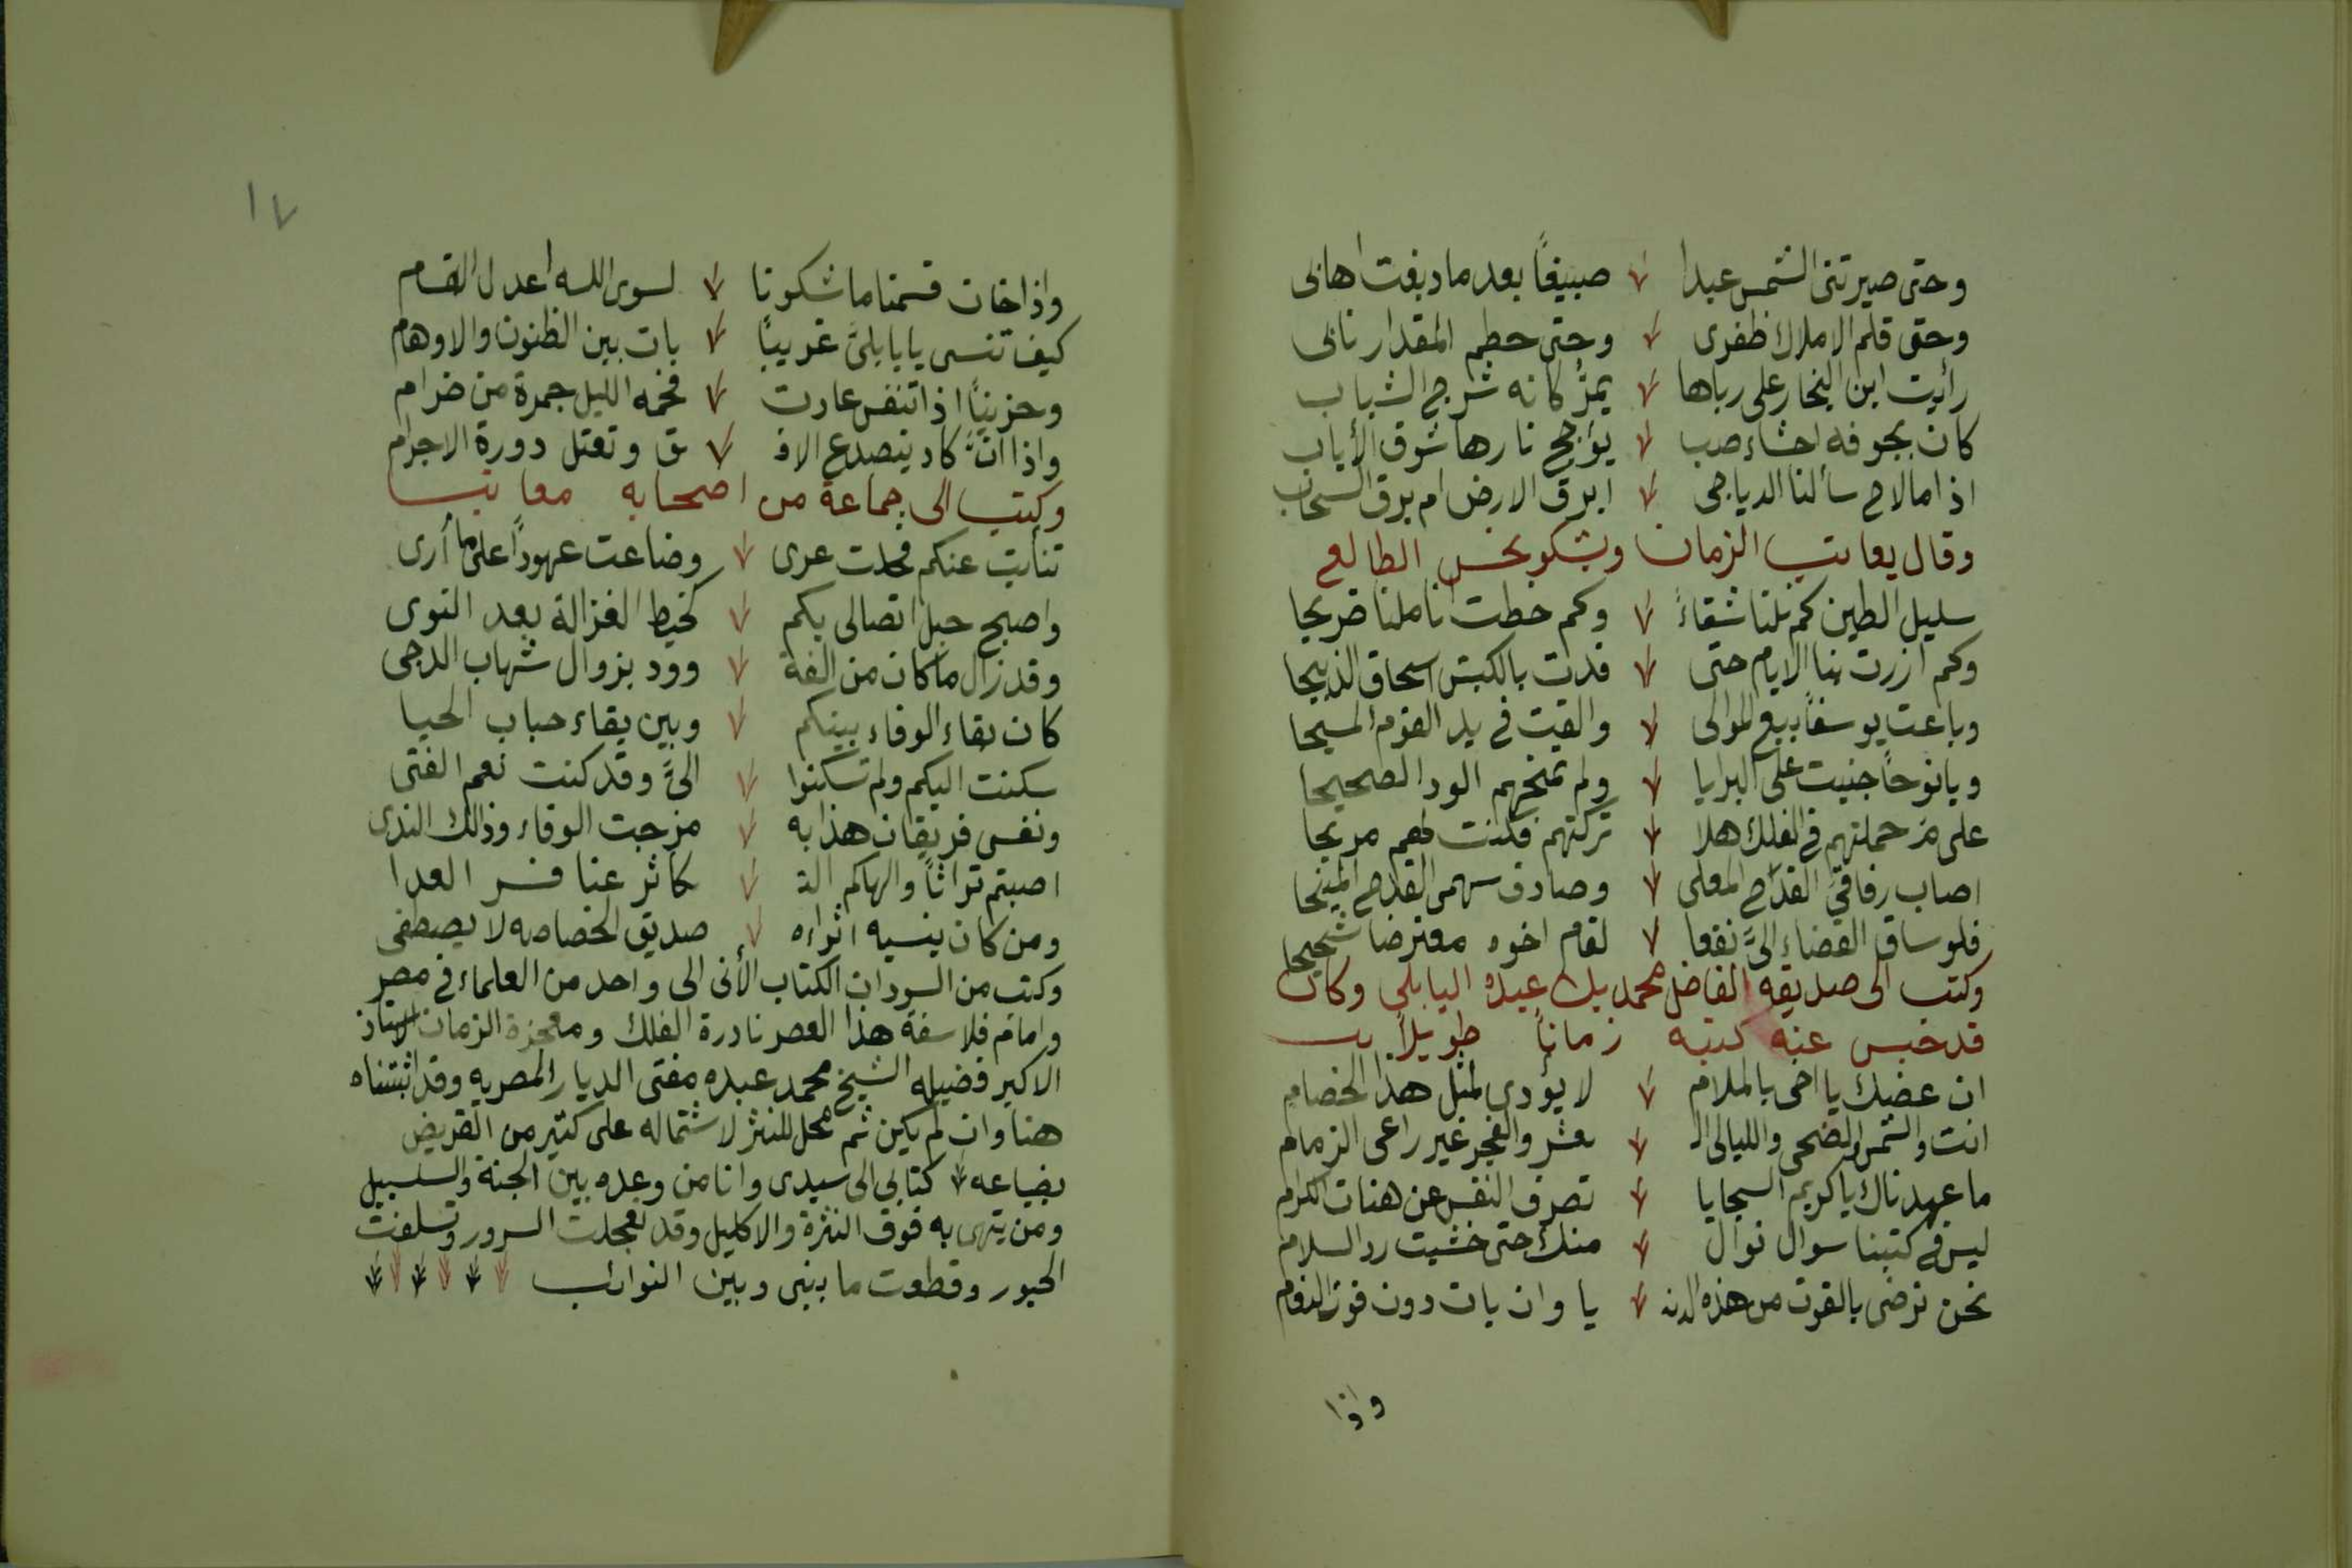 وحتى صيرتنى الشمس عبدا صبيغاً بعد ما دبغت اهابى
وحتى قلم الاملاك ظفرى وحتى حطم المقدار نابى
رأيت ابن البخار على رباها يمرُّ كانه شرخ الشباب
كان بجوفه احشاء صب يؤجج نارها شوق الأياب
اذا ما لاح سألنا الدياجى ابرق الارض ام برق السحاب
وقال يعاتب الزمان ويشكو نحس الطالع
سليل الطين كم نلنا شقاءً وكم خطت اناملنا ضريحا
وكم ازرت بنا الايام حتى فدت بالكبش اسحاق الذبيحا
وباعت يوسفاً بيع الموالى والقيت فى يد القوم المسيحا
ويا نوحاً جنيت على البرايا ولم تمنحهم الود الصحيحا
على مَ حملتهم فى الفلك هلا تركتهم فكنت لهم مريحا
اصاب رفاقىَّ القدَاح المعلى وصادف سهمى القدح المنيحا
فلو ساق القضاء الىَّ نفعا لقام اخوه معترضا شحيحا
وكتب الى صديقه الفاضل محمد بك عبده البابلى وكان
قد حبس عنه كتبه زماناً طويلاً
ان عضبك يا اخى بالملام لا يؤدى لمثل هذا الخصام
انت والشمس والضحى والليالى الـ عشر والفجر غير راعى الزمام
ما عهدناك يا كريم السجايا تصرف النفس عن هنات الكرام
ليس فى كتبنا سوال نوال منك حتى خشيت رد السلام
نحن نرضى بالقوت من هذه الدنـ يا وان بات دون قوت النعام
واذا
١٧
واذا خان قسمنا ما شكونا لسوى الله اعدل القسام
كيف تنسى يا بابلىَّ غريباً بات بين الظنون والاوهام
وحزيناً اذا تنفس عادت فحمه الليل جمرة من ضرام
واذا انَّ كاد يتصدع الافـ ق وتعتل دورة الاجرام
وكتب الى جماعة من اصحابه معاتبا
تنأيت عنكم فحلت عرى وضاعت عهوداً على ما أرى
واصبح حبل اتصالى بكم كخيط الغزالة بعد النوى
وقد زال ما كان من الفة وود بزوال شهاب الدجى
كان بقاء الوفاء بينكم وبين بقاء حباب الحيا
سكنت اليكم ولم تسكنوا الىَّ وقد كنت نعم الفتى
ونفسى فريقان هذا به مزجت الوفاء وذالك الندى
اصبتم تراثاً والهاكم التـ كاثر عنا فسر العدا
ومن كان ينسيه اثراه صديق الخصاصه لا يصطفى
وكتب من السودان الكتاب الأتى الى واحد من العلماء فى مصر
وامام فلاسفة هذا العصر نادرة الفلك ومعجزة الزمان الاستاذ
الاكبر فضيله الشيخ محمد عبده مفتى الديار المصريه وقد اثبتناه
هنا وان لم يكن ثم محل للنثر لاشتماله على كثير من القريض
بضياعه كتابي الى سيدى وانا من وعده بين الجنة والسلسبيل
ومن يتهى به فوق النثرة والاكليل وقد تعجلت السرور وتسلفت
الحبور وقطعت ما بينى وبين النوائب